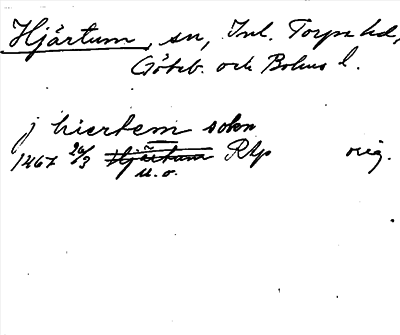 Hjärtum, sn, Inl. Torpe hd,
Göteb. och Bohus l.
j hiertem sokn
1467 26/3 Hjärtum Rtp orig.
u. o.